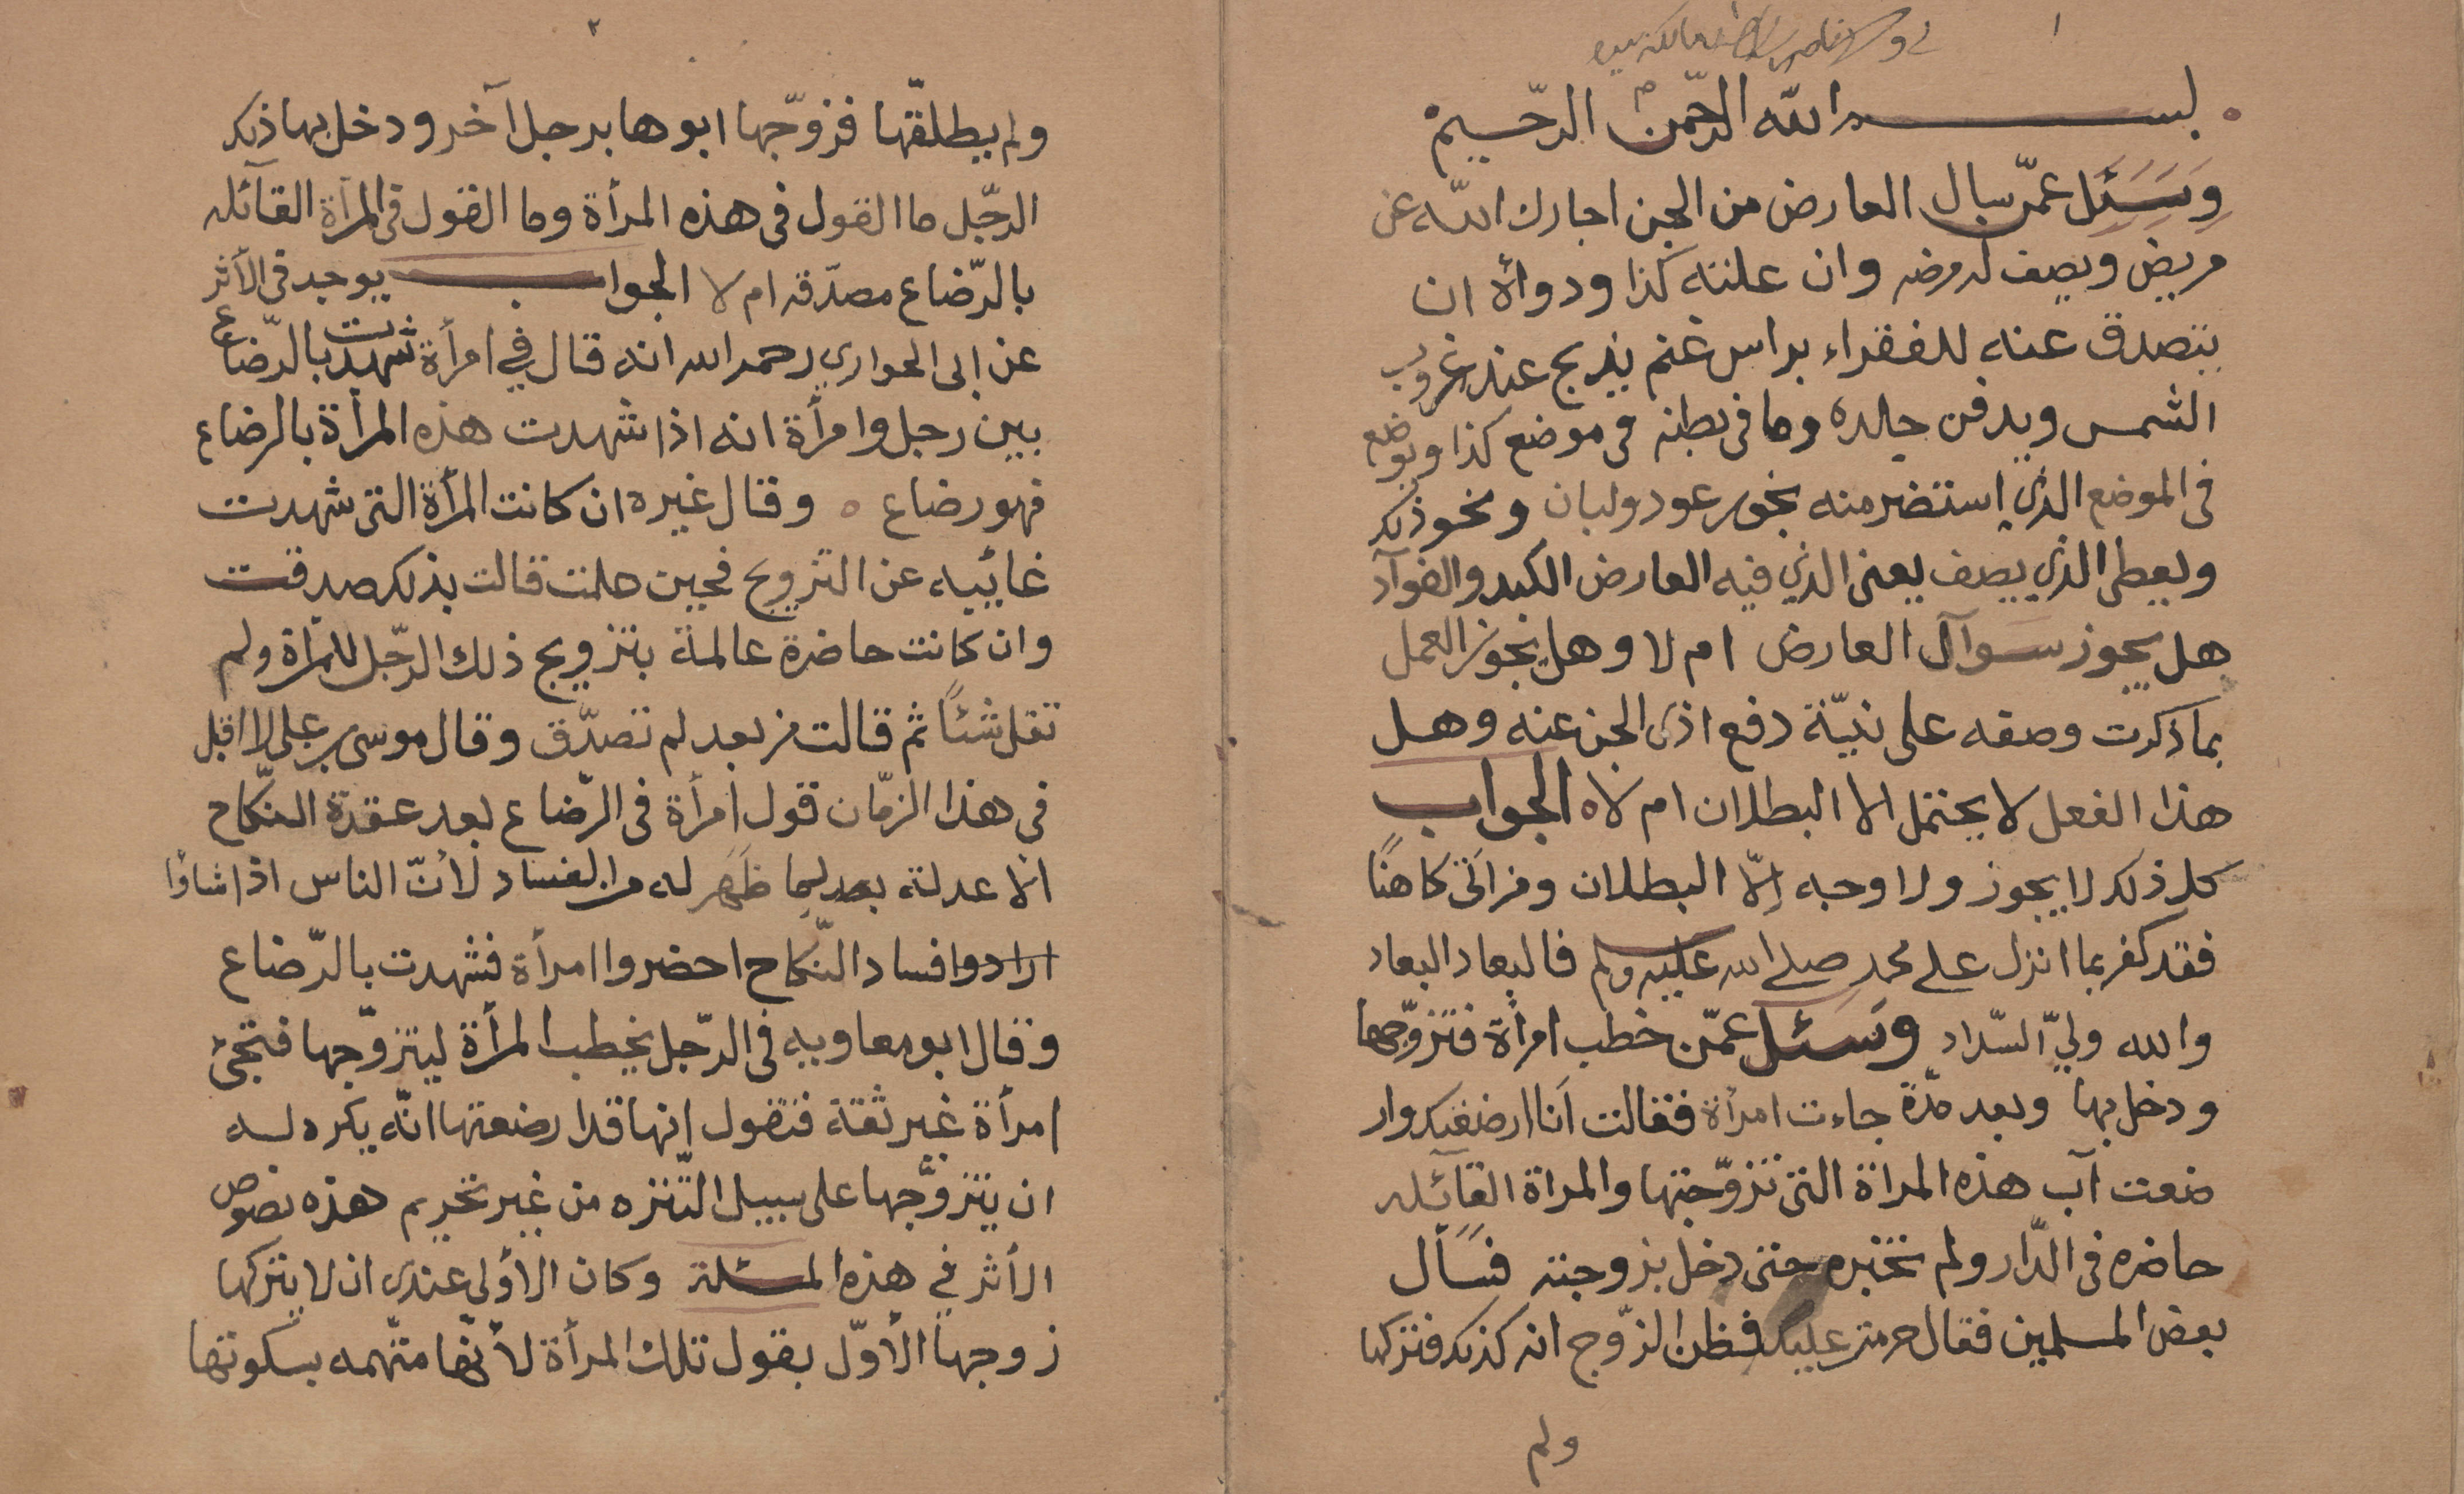 ١
بســم الله الرّحمن الرّحيم
وَسَئَل عمّن سال العارض من الجن اجارك الله عن
مريض ويصف له مرضه وان علته كذا ودوائه ان
يتصدق عنه للفقراء براس غنم يذبح عند غروب
الشمس ويدفن جلده وما فى بطنه فى موضع كذا ويوضع
فى الموضع الذي استضر منه بخور عود ولبان ونحو ذلك
ويعطى الذي يصف يعنى الذي فيه العارض الكبد والفوآد
هل يجوز سَوآل العارض ام لا وهل يجوز العمل
بما ذكرت وصفه على نيّة دفع اذى الجن عنه وهل
هذا الفعل لا يحتمل الا البطلان ام لا ٥ الجواب
كل ذلك لا يجوز ولا وجه إلّا البطلان ومن اتى كاهنًا
فقد كفر بما انزل على محمد صلى الله عليه وسلم فالبعاد البعاد
والله وليّ السّداد وَسَئل عمّن خطب امرأة فتزوّجها
ودخل بها وبعد مدّة جاءت امرأة فقالت اَنا ارضعتك وار
ضعت آب هذه المراة التى تزوّجتها والمراة القآئله
حاضره فى الدّار ولم تخبره حتى دخل بزوجته فسأل
بعض المسلمين فقال حرمت عليك فظن الزّوج انه كذلك فتركها
ولم
٢
ولم يطلقّها فزوّجها ابوها برجل آخر ودخل بها ذلك
الرّجل ما القول فى هذه المرأة وما القول فى المرأة القآئله
بالرّضاع مصدّقه ام لا الجواب يوجد فى الأثر
عن ابى الحواري رحمه الله انه قال في امرأة شهدت بالرّضاع
بين رجل وامرأة انه اذا شهدت هذه المرأة بالرضاع
فهو رضاع ٥ وقال غيره ان كانت المرأة التى شهدت
غائيبه عن التزويج فحين علمت قالت بذلك صدقت
وان كانت حاضرة عالمة بتزويج ذلك الرّجل للمرأة ولم
تقل شئًا ثم قالت من بعد لم تصدّق وقال موسى بن على لا اقبل
فى هذا الزّمان قول امرأة فى الرّضاع بعد عقدة النكّاح
الا عدلة بعد لما ظَهَر له من الفساد لأنّ الناس اذا شاؤا
ارادوا فساد النّكاح احضروا امرأة فشهدت بالرّضاع
وقال ابو معاويه فى الرّجل يخطب المرأة ليتزوّجها فتجئ
امرأة غير ثقة فتقول إنها قد ارضعتها انّه يكره لـه
ان يتزوَّجها على سبيل التّنزه من غير تحريم هذه نصوص
الأثر في هذه المسئلة وكان الأولى عندى ان لا يتركها
زوجها الأوّل بقول تلك المرأة لأنّها متّهمه بسكوتها